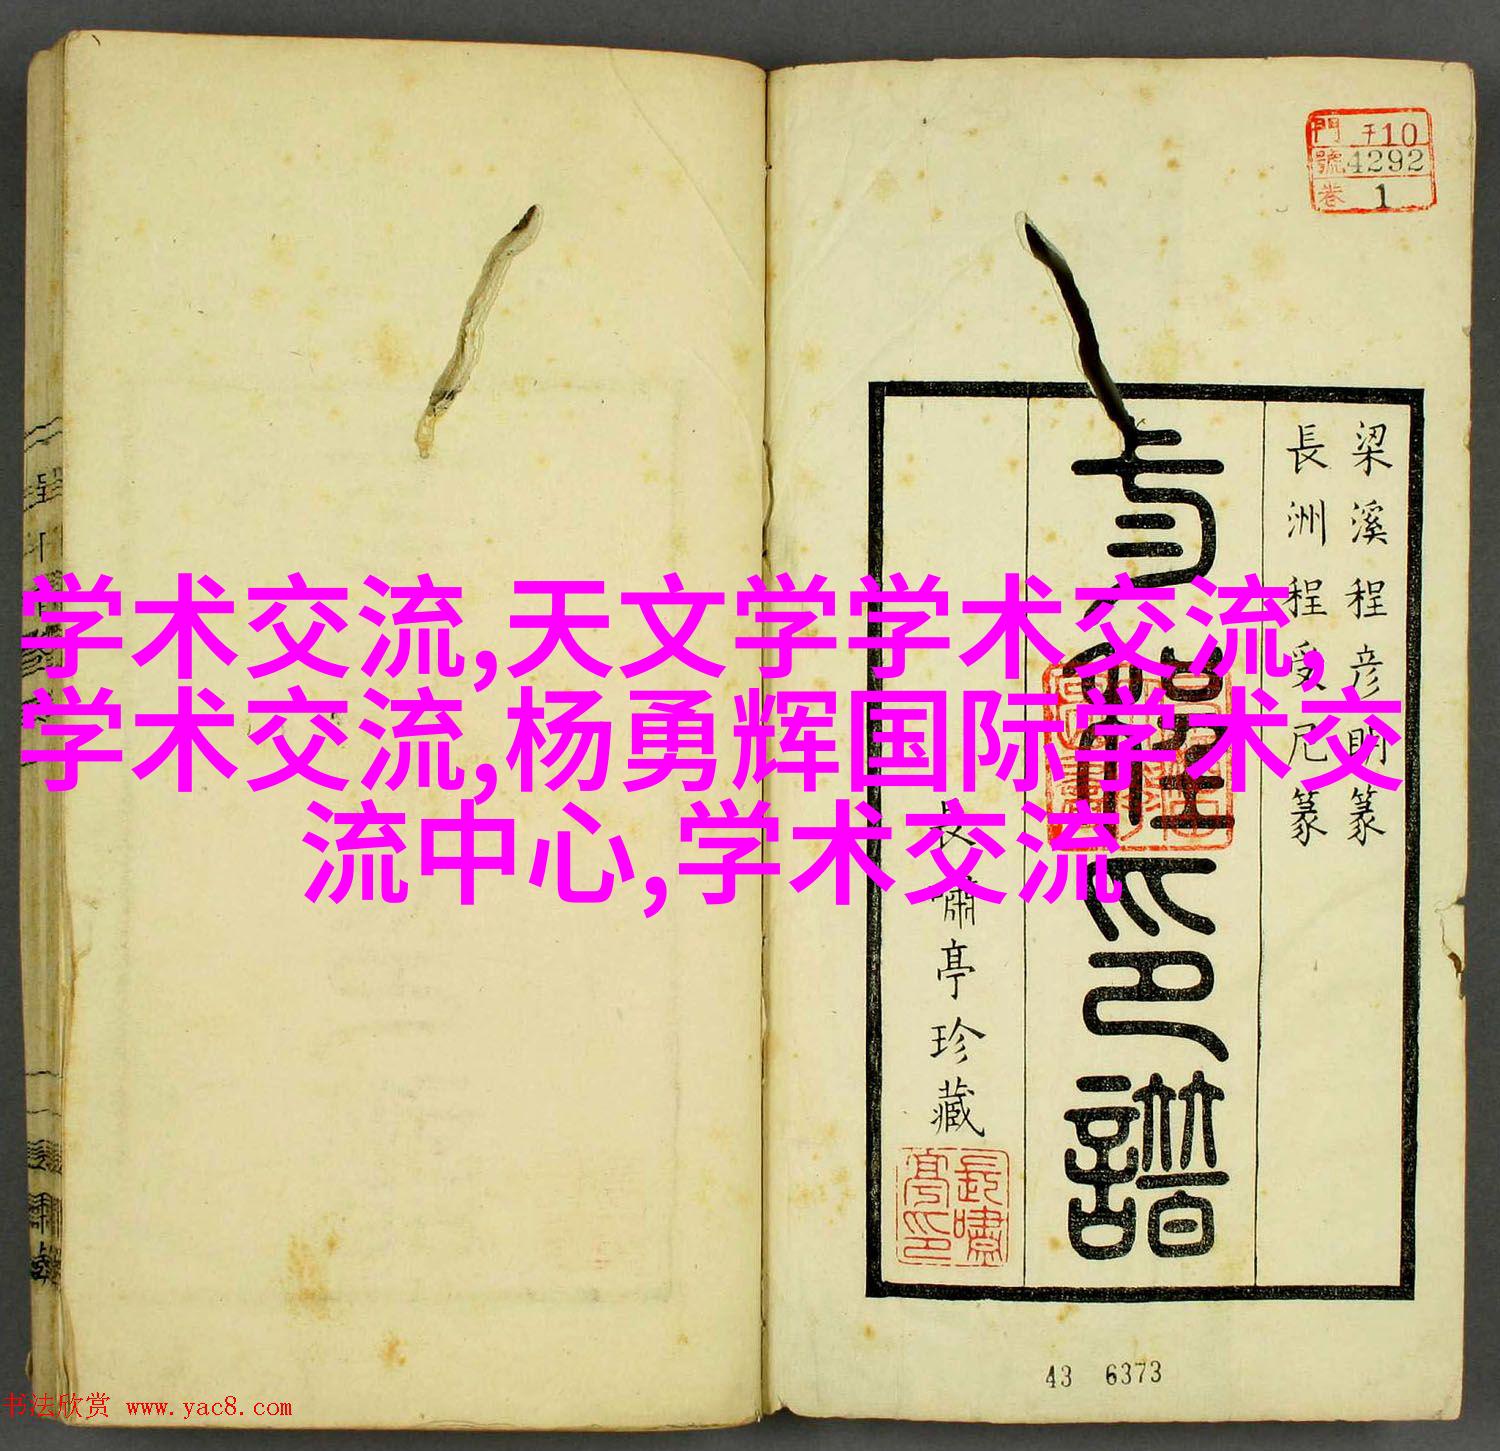 門 チ10
號 4292
卷 1
梁溪程彦明篆
長洲程受尼篆
印譜
長嘯亭珍藏
長嘯亭印
学术交流,天文学学术交流,
学术交流,杨勇辉国际学术交
流中心,学术交流
43 6373
书法欣赏 www.yac8.com